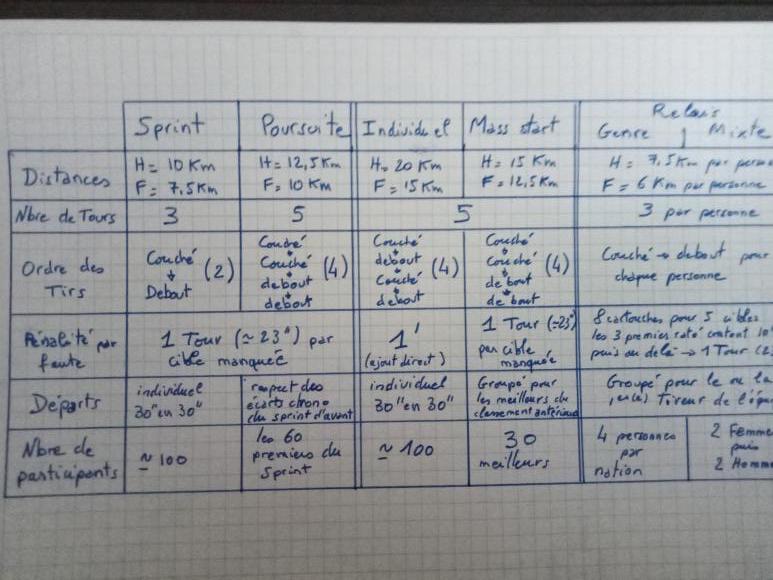 Relais
Sprint Poursuite Individuel Mass start Genre | Mixte
Distances
H = 10 Km
F = 7,5 Km
H = 12,5 Km
F = 10 Km
H = 20 Km
F = 15 Km
H = 15 Km
F = 12,5 Km
H = 7,5 Km par perso
F = 6 Km par personne
Nbre de Tours 3 5 5 3 par personne
Ordre des
Tirs
Couché
↓
Debout
(2)
Couché
↓
Couché
↓
debout
↓
debout
(4)
Couché
↓
debout
↓
Couché
↓
debout
(4)
Couché
↓
Couché
↓
debout
↓
debout
(4)
Couché → debout pour
chaque personne
Pénalité par
faute
1 Tour (≃ 23") par
cible manquée
1'
(ajout direct)
1 Tour (≃23")
par cible
manquée
8 cartouches pour 5 cibles
les 3 premiers raté content 10"
puis au delà → 1 Tour (2
Départs
individuel
30" en 30"
respect des
écarts chrono
du sprint d'avant
individuel
30" en 30"
Groupé pour
les meilleurs du
classement antérieur
Groupé pour le ou la
Tireur de l'équ
Nbre de
participants
≃ 100
les 60
premiers du
Sprint
≃ 100
30
meilleurs
4 personnes
par
nation
2 Femme
puis
2 Homm